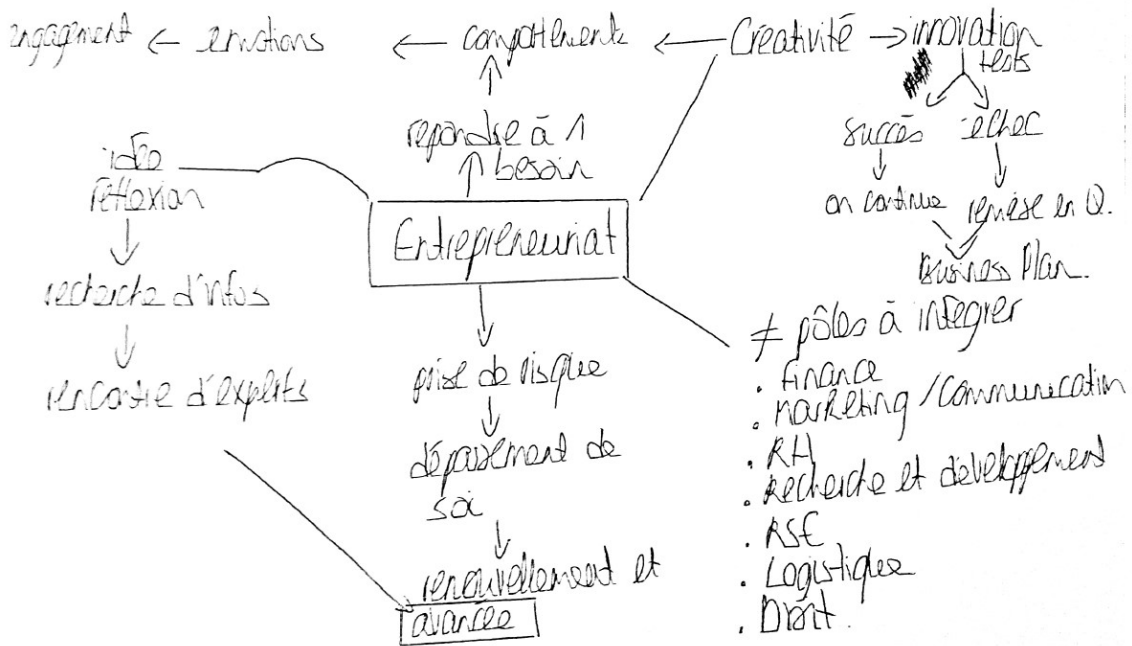 engagement ← emotions ← comportements ← Créativité → innovation
tests
succès echec
on continue remise en Q.
Business Plan.
repondre à 1
besoin
idée
réflexion
recherche d'infos
rencontre d'experts
Entrepreneuriat
prise de risque
dépassement de
soi
renouvellement et
avancée
≠ pôles à intégrer
. Finance
. Marketing / Communication
. RH
. Recherche et développement
. RSE
. Logistique
. Droit.